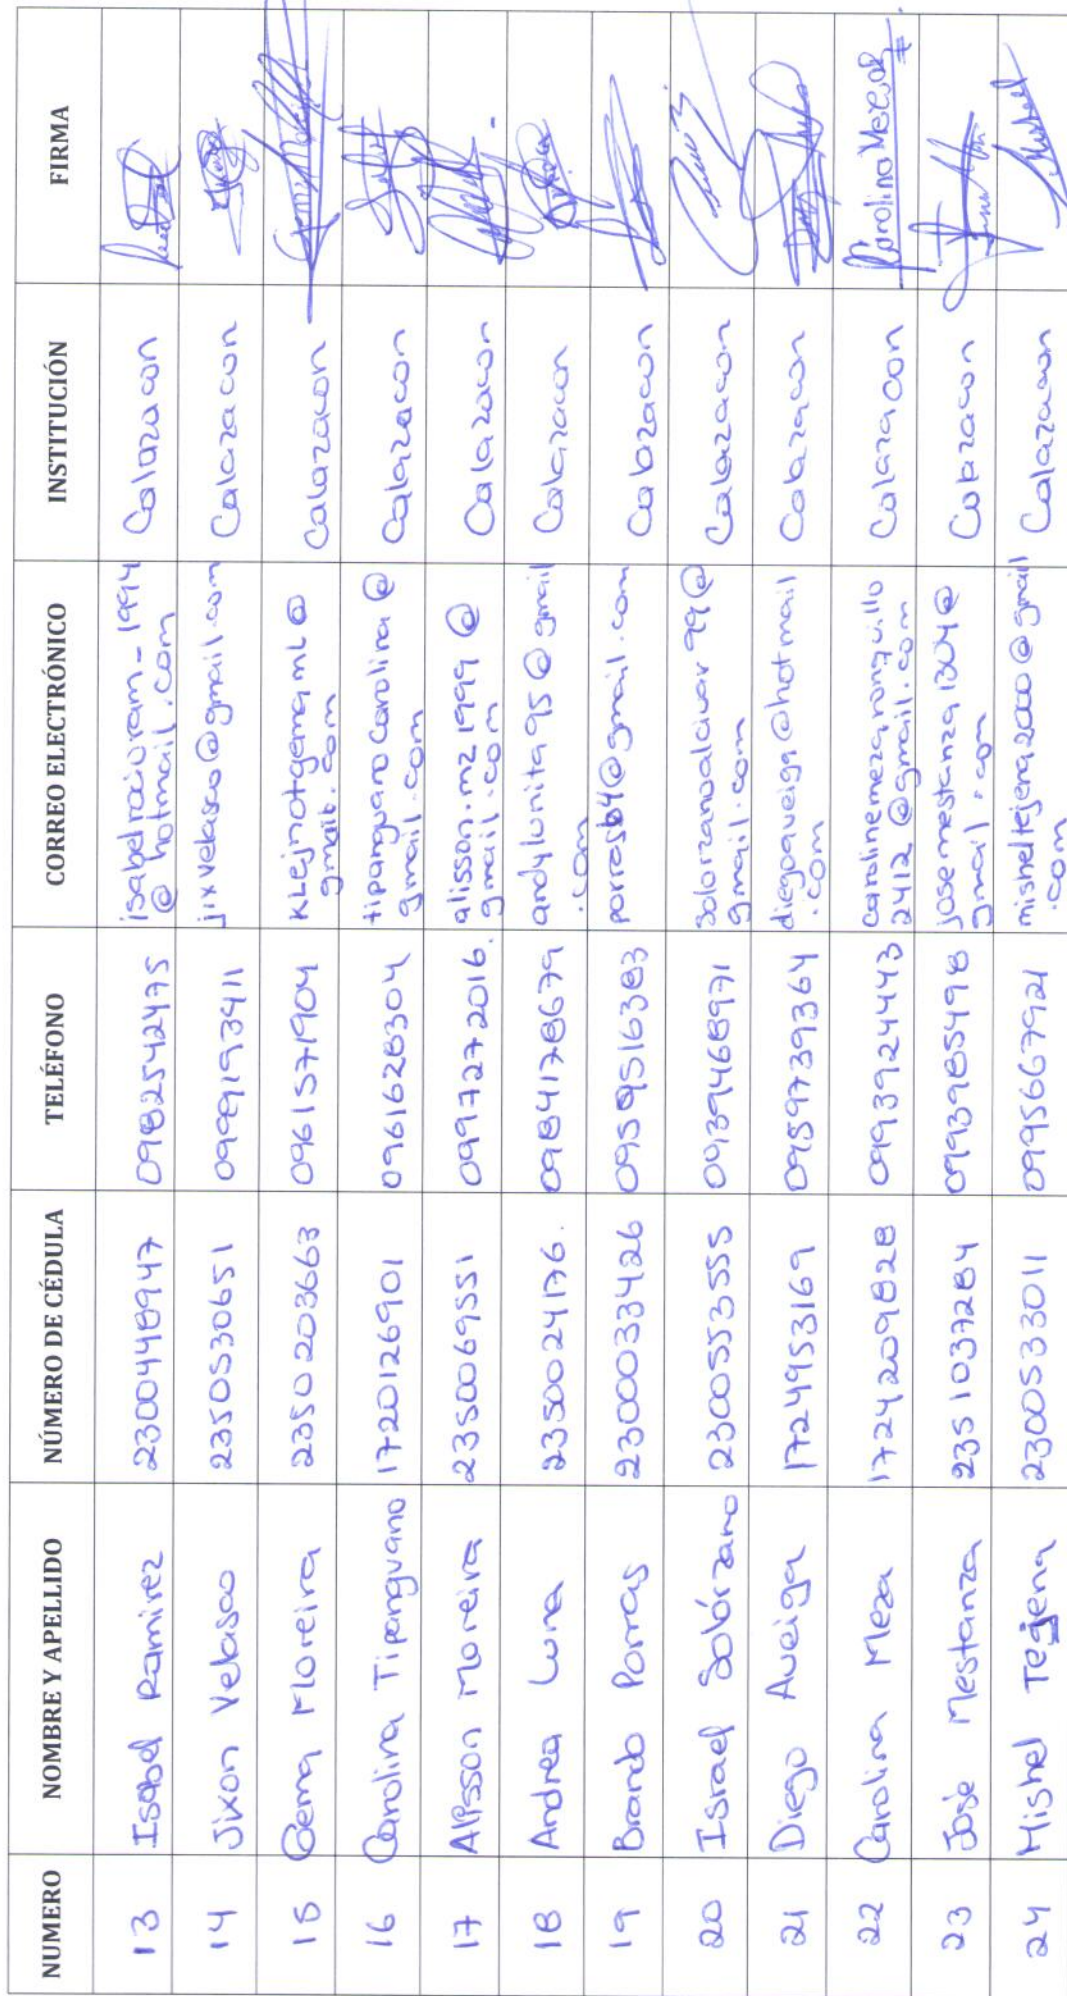 NUMERO NOMBRE Y APELLIDO NÚMERO DE CÉDULA TELÉFONO CORREO ELECTRÓNICO INSTITUCIÓN FIRMA
13 Isabel Ramirez 2300448947 0982542475 isabelrocioram-1994 Calazacon
@hotmail.com
14 Jixon Velasco 2350530651 0999193411 jixvelasco@gmail.com Calazacon
15 Gema Moreira 2350203663 0961571904 Calazacon
gmail.com
16 Carolina Tipanguano 1720126901 0961628304 tipanguanocarolina@ Calazacon
gmail.com
17 Alisson Moreira 2350069551 0997272016. alisson.mz1999@ Calazacon
gmail.com
18 Andrea Luna 2350024176. 0984178679 andylunita95@gmail Calazacon
.com
19 Brando Porras 2300033426 0959516383 porrasb64@gmail.com Calazacon
20 Israel Solórzano 2300553555 0939468971 solorzanoalcivar99@ Calazacon
gmail.com
21 Diego Aveiga 1724953169 0959739364 diegoaveiga@hotmail Calazacon
.com
22 Carolina Meza 1724209828 0993924443 carolinemezanonguillo Calazacon Carolina Meza
2412@gmail.com
23 José Mestanza 2351037284 0993985498 josemestanza1304@ Calazacon
gmail.com
24 Mishel Tejena 2300533011 0995667921 misheltejena2000@gmail Calazacon Mishel
.com